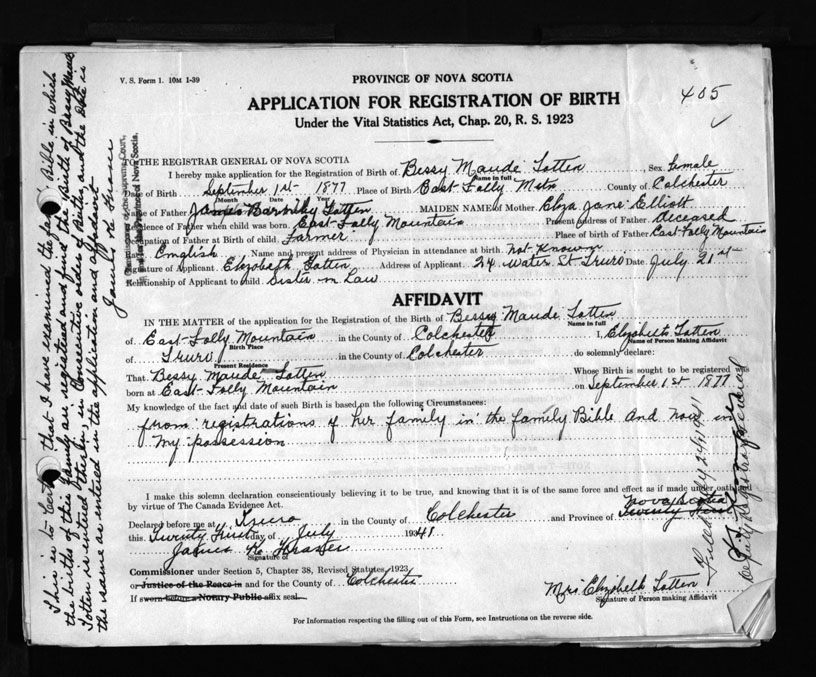 V. S. Form 1. 10M 1-39
PROVINCE OF NOVA SCOTIA
405
APPLICATION FOR REGISTRATION OF BIRTH
Under the Vital Statistics Act, Chap. 20, R. S. 1923
TO THE REGISTRAR GENERAL OF NOVA SCOTIA
I hereby make application for the Registration of Birth of Bessy Maude Totten, Sex female
Name in full
Date of Birth September 1st 1877 Place of Birth East Folly Mtn County of Colchester
Month Date Year
Name of Father James Barnby Totten MAIDEN NAME of Mother Eliza Jane Elliott
Residence of Father when child was born East Folly Mountain Present address of Father deceased
Occupation of Father at Birth of child Farmer Place of birth of Father East Folly Mountain
English Name and present address of Physician in attendance at birth not Known
Signature of Applicant Elizabeth Totten Address of Applicant 24 Water St Truro Date July 21st
Relationship of Applicant to child Sister in Law
AFFIDAVIT
IN THE MATTER of the application for the Registration of the Birth of Bessy Maude Totten
Name in full
of East Folly Mountain in the County of Colchester I, Elizabeth Totten
Birth Place Name of Person Making Affidavit
of Truro in the County of Colchester do solemnly declare:
Present Residence
That Bessy Maude Totten Whose Birth is sought to be registered was
born at East Folly Mountain on September 1st 1877
My knowledge of the fact and date of such Birth is based on the following Circumstances:
from registrations of her family in the family Bible and now in
my possession
I make this solemn declaration conscientiously believing it to be true, and knowing that it is of the same force and effect as if made under oath and
by virtue of The Canada Evidence Act.
Nova Scotia
Declared before me at Truro in the County of Colchester and Province of Twenty First
this Twenty First day of July 1941
James K Fraser
Signature of
Commissioner under Section 5, Chapter 38, Revised Statutes, 1923
or Justice of the Peace in and for the County of Colchester
If sworn before a Notary Public affix seal
Mrs. Elizabeth Totten
Signature of Person making Affidavit
For Information respecting the filling out of this Form, see Instructions on the reverse side.
This is to Certify that I have examined the family Bible in which
the births of this family are registered and find the Birth of Bessy Maude
Totten is entered therein, in Consecutive order of Births, and the Date is
the same as entered in the application and affidavit
James K Fraser
of the Supreme Court,
Province of Nova Scotia.
Deputy Registrar General